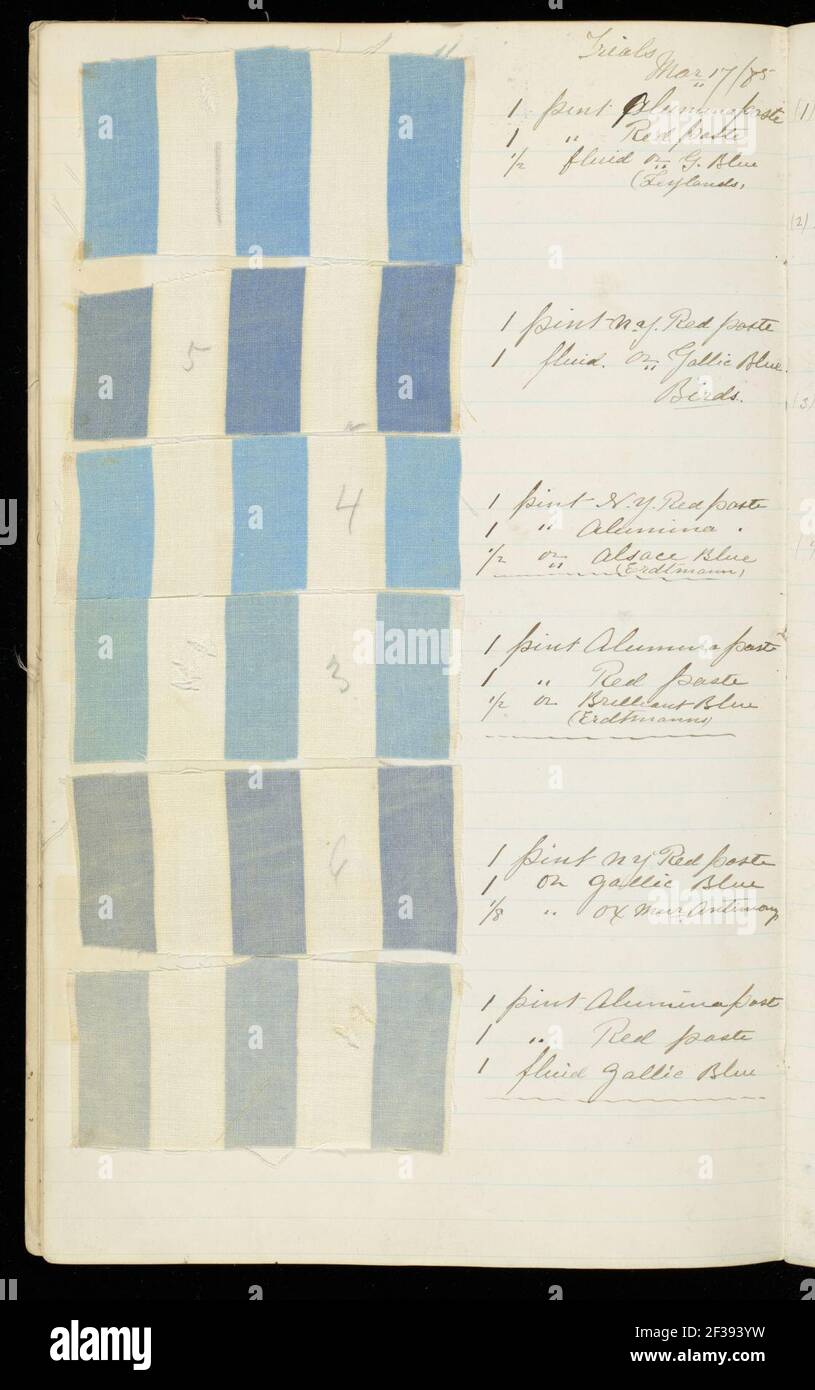 Trials
Mar 17/85
1 pint Alumina paste
1 " Red paste
1/2 fluid oz G. Blue
(Leylands)
(1)
(2)
1 pint N.Y. Red paste
1 fluid. oz Gallic Blue.
Birds.
(3)
5
1 pint N.Y. Red paste
1 " Alumina .
1/2 oz Alsace Blue
(Erdtmann)
4
1 pint Alumina paste
1 " Red paste
1/2 oz Brilliant Blue
(Erdtmanns)
3
1 pint N.Y Red paste
1 oz Gallic Blue
1/8 " ox mur. Antimony
6
1 pint Alumina paste
1 " Red paste
1 fluid Gallic Blue
alamy
Image ID: 2F393YW
www.alamy.com